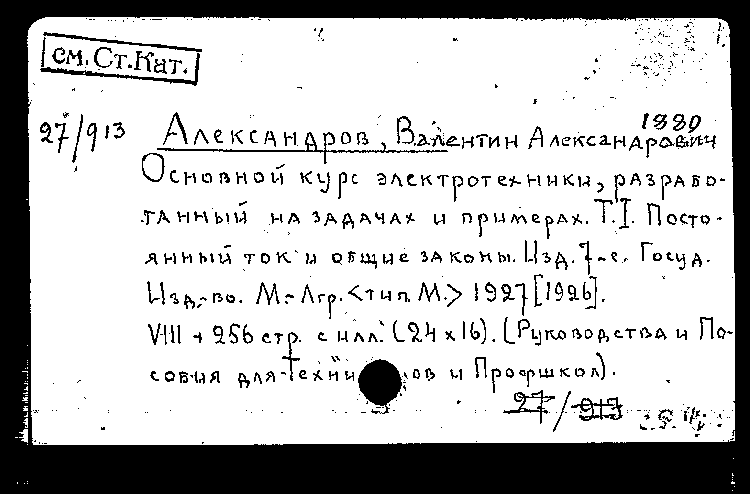 см. Ст. Кат.
27/913
1880
Александров, Валентин Александрович
Основной курс электротехники, разрабо-
танный на задачах и примерах. Т. I. Посто-
янный ток и общие законы. Изд. 7-е. Госуд.
Изд-во. М.-Лгр. <тип. М.> 1927 [1926].
VIII + 256 стр. с илл. (24 x 16). (Руководства и По-
собия для Техни ов и Профшкол).
27/913